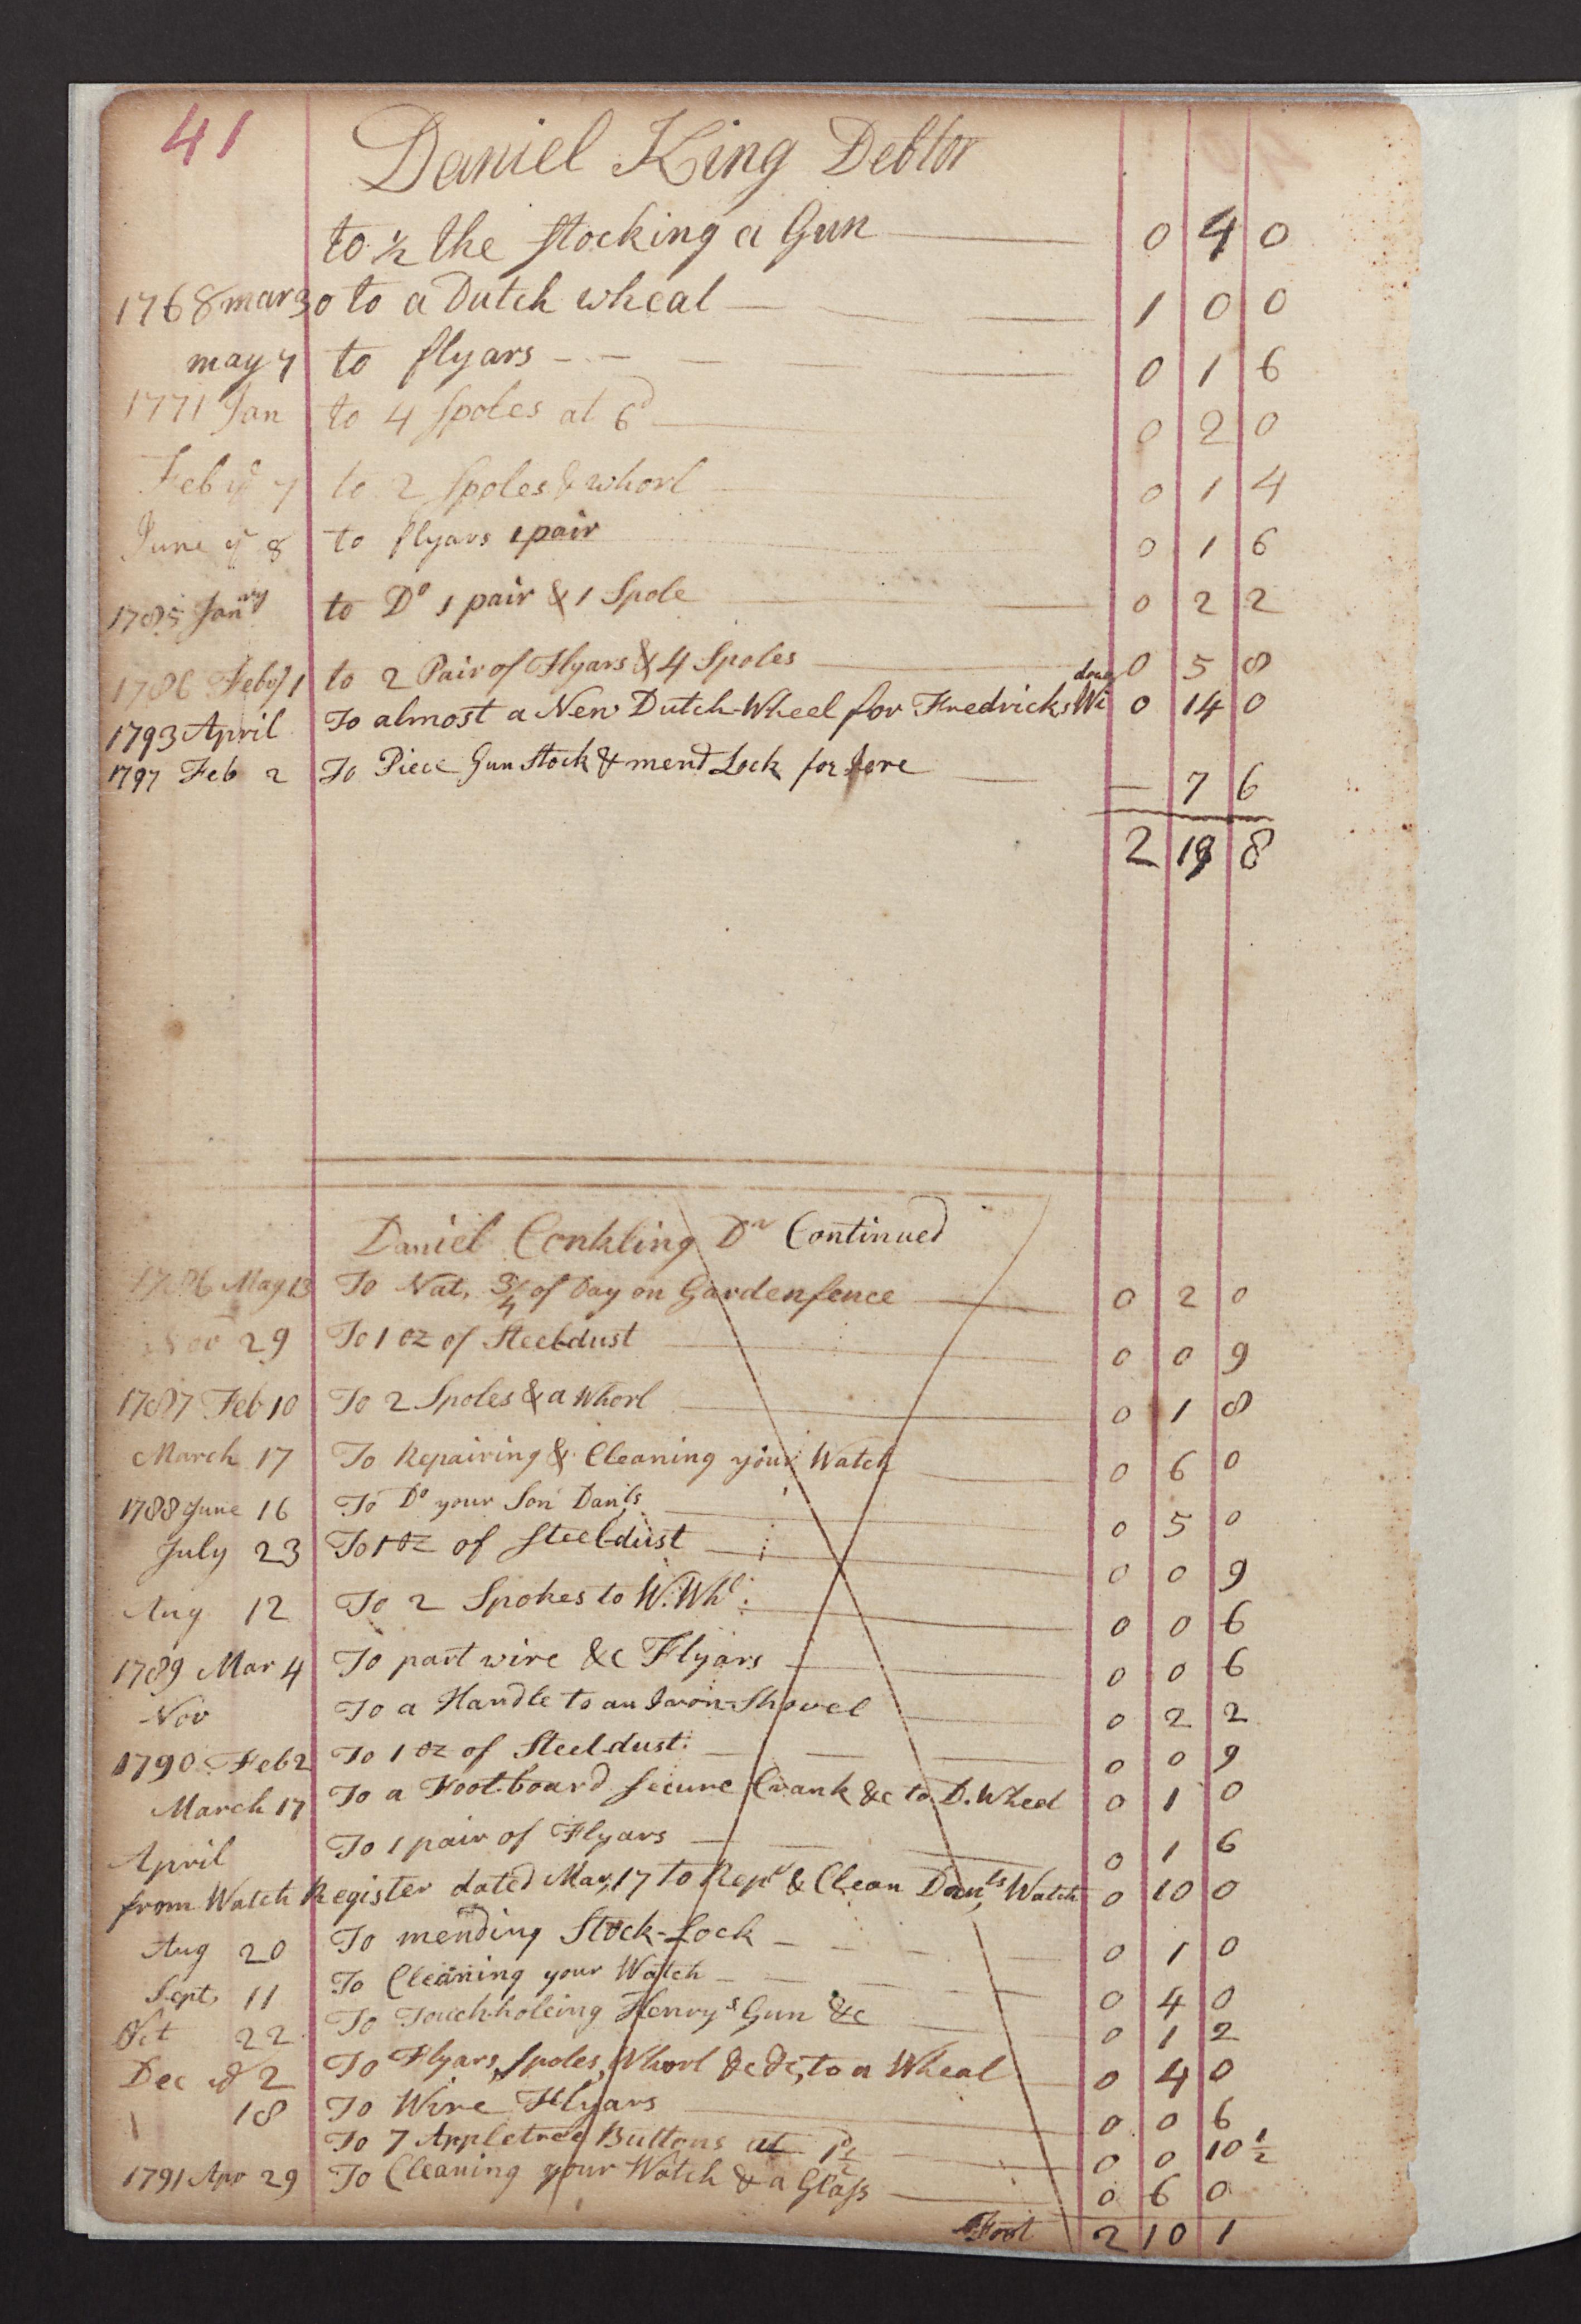 41
Daniel King Debtor
to ½ the stocking a Gun 0 4 0
1768 mar 30 to a Dutch wheal 1 0 0
may 7 to flyars 0 1 6
1771 Jan to 4 Spoles at 6d 0 2 0
Feb ye 7 to 2 Spoles & whorl 0 1 4
June ye 8 to flyars 1 pair 0 1 6
1785 Janry to Do 1 pair & 1 Spole 0 2 2
1786 Feby 1 to 2 Pair of Flyars & 4 Spoles 0 5 8
1793 April To almost a New Dutch-Wheel for Fredricks Widow 0 14 0
1797 Feb 2 To Piece Gun Stock & mend Lock for Jere — 7 6
2 19 8
Daniel Conkling Dr Continued
1786 May 13 To Nat, ¾ of Day on Gardenfence 0 2 0
Nov 29 To 1 oz of Steel-dust 0 0 9
1787 Feb 10 To 2 Spoles & a Whorl 0 1 8
March 17 To Repairing & Cleaning your Watch 0 6 0
1788 June 16 To Do your Son Danls 0 5 0
July 23 To 1 oz of Steel-dust 0 0 9
Aug 12 To 2 Spokes to W. Whl. 0 0 6
1789 Mar 4 To part wire &c Flyars 0 0 6
Nov To a Handle to an Iron-Shovel 0 2 2
1790 Feb 2 To 1 oz of Steel-dust 0 0 9
March 17 To a Foot-board secure Crank &c to D. Wheel 0 1 0
April To 1 pair of Flyars 0 1 6
from Watch Register dated Mar, 17 to Repr & Clean Danls Watch 0 10 0
Aug 20 To mending Stock-Lock 0 1 0
Sept, 11 To Cleaning your Watch 0 4 0
Oct 22 To Touch-holeing Henrys Gun &c 0 1 2
Dec ye 2 To Flyars, Spoles, Whorl &c &c, to a Wheal 0 4 0
18 To Wire Flyars 0 0 6
To 7 Appletree Buttons at 1d½ 0 0 10½
1791 Apr 29 To Cleaning your Watch & a Glass 0 6 0
Foot 2 10 1